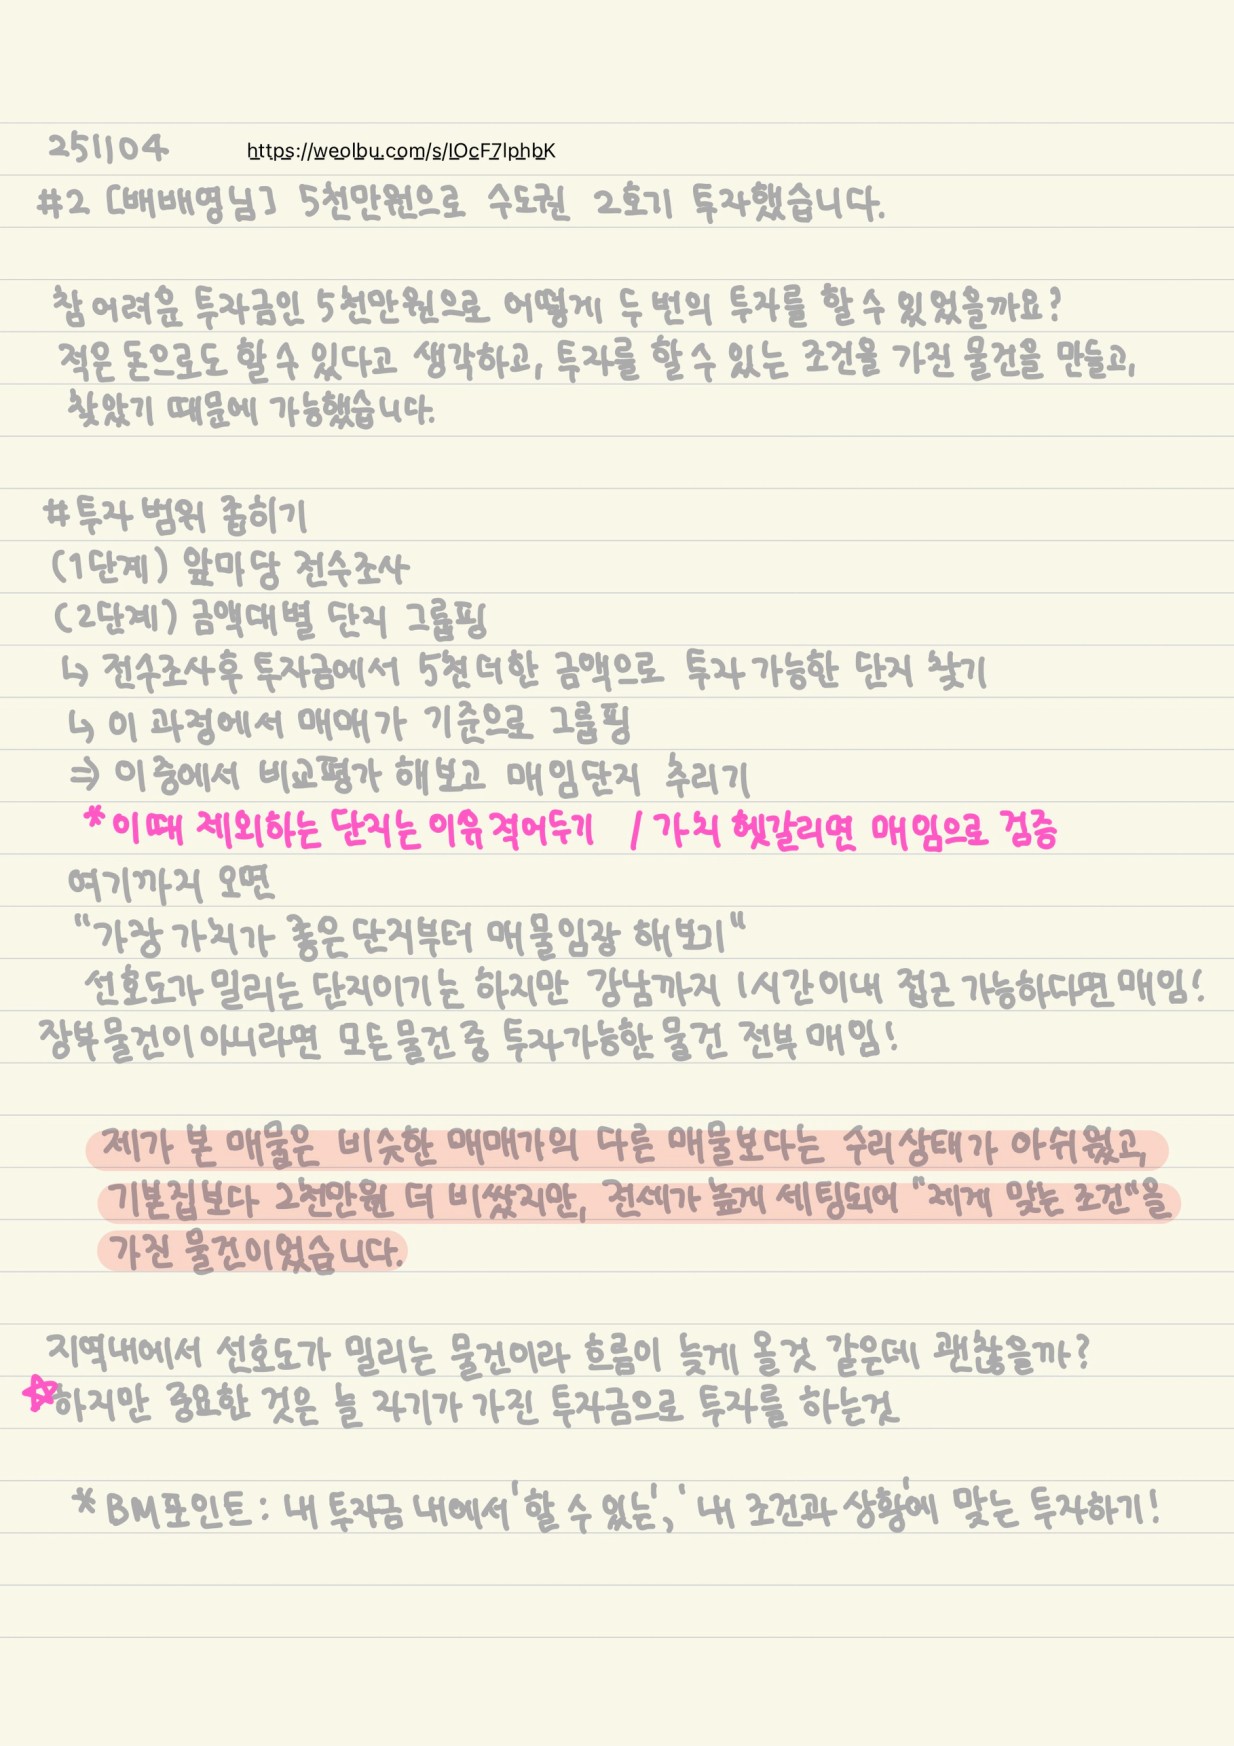 251104 https://weolbu.com/s/IOcF7IphbK
#2 [배배영님] 5천만원으로 수도권 2호기 투자했습니다.
참 어려운 투자금인 5천만원으로 어떻게 두 번의 투자를 할 수 있었을까요?
적은 돈으로도 할 수 있다고 생각하고, 투자를 할 수 있는 조건을 가진 물건을 만들고,
찾았기 때문에 가능했습니다.
#투자 범위 좁히기
(1단계) 앞마당 전수조사
(2단계) 금액대별 단지 그룹핑
↳ 전수조사후 투자금에서 5천 더한 금액으로 투자 가능한 단지 찾기
↳ 이 과정에서 매매가 기준으로 그룹핑
⇒ 이 중에서 비교평가 해보고 매임단지 추리기
*이때 제외하는 단지는 이유 적어두기 / 가치 헷갈리면 매임으로 검증
여기까지 오면
"가장 가치가 좋은 단지부터 매물임장 해보기"
선호도가 밀리는 단지이기는 하지만 강남까지 1시간 이내 접근 가능하다면 매임!
장부물건이 아니라면 모든 물건 중 투자가능한 물건 전부 매임!
제가 본 매물은 비슷한 매매가의 다른 매물보다는 수리상태가 아쉬웠고,
기본집보다 2천만원 더 비쌌지만, 전세가 높게 세팅되어 "제게 맞는 조건"을
가진 물건이었습니다.
지역내에서 선호도가 밀리는 물건이라 흐름이 늦게 올것 같은데 괜찮을까?
☆하지만 중요한 것은 늘 자기가 가진 투자금으로 투자를 하는것
*BM포인트: 내 투자금 내에서 '할 수 있는', '내 조건과 상황'에 맞는 투자하기!